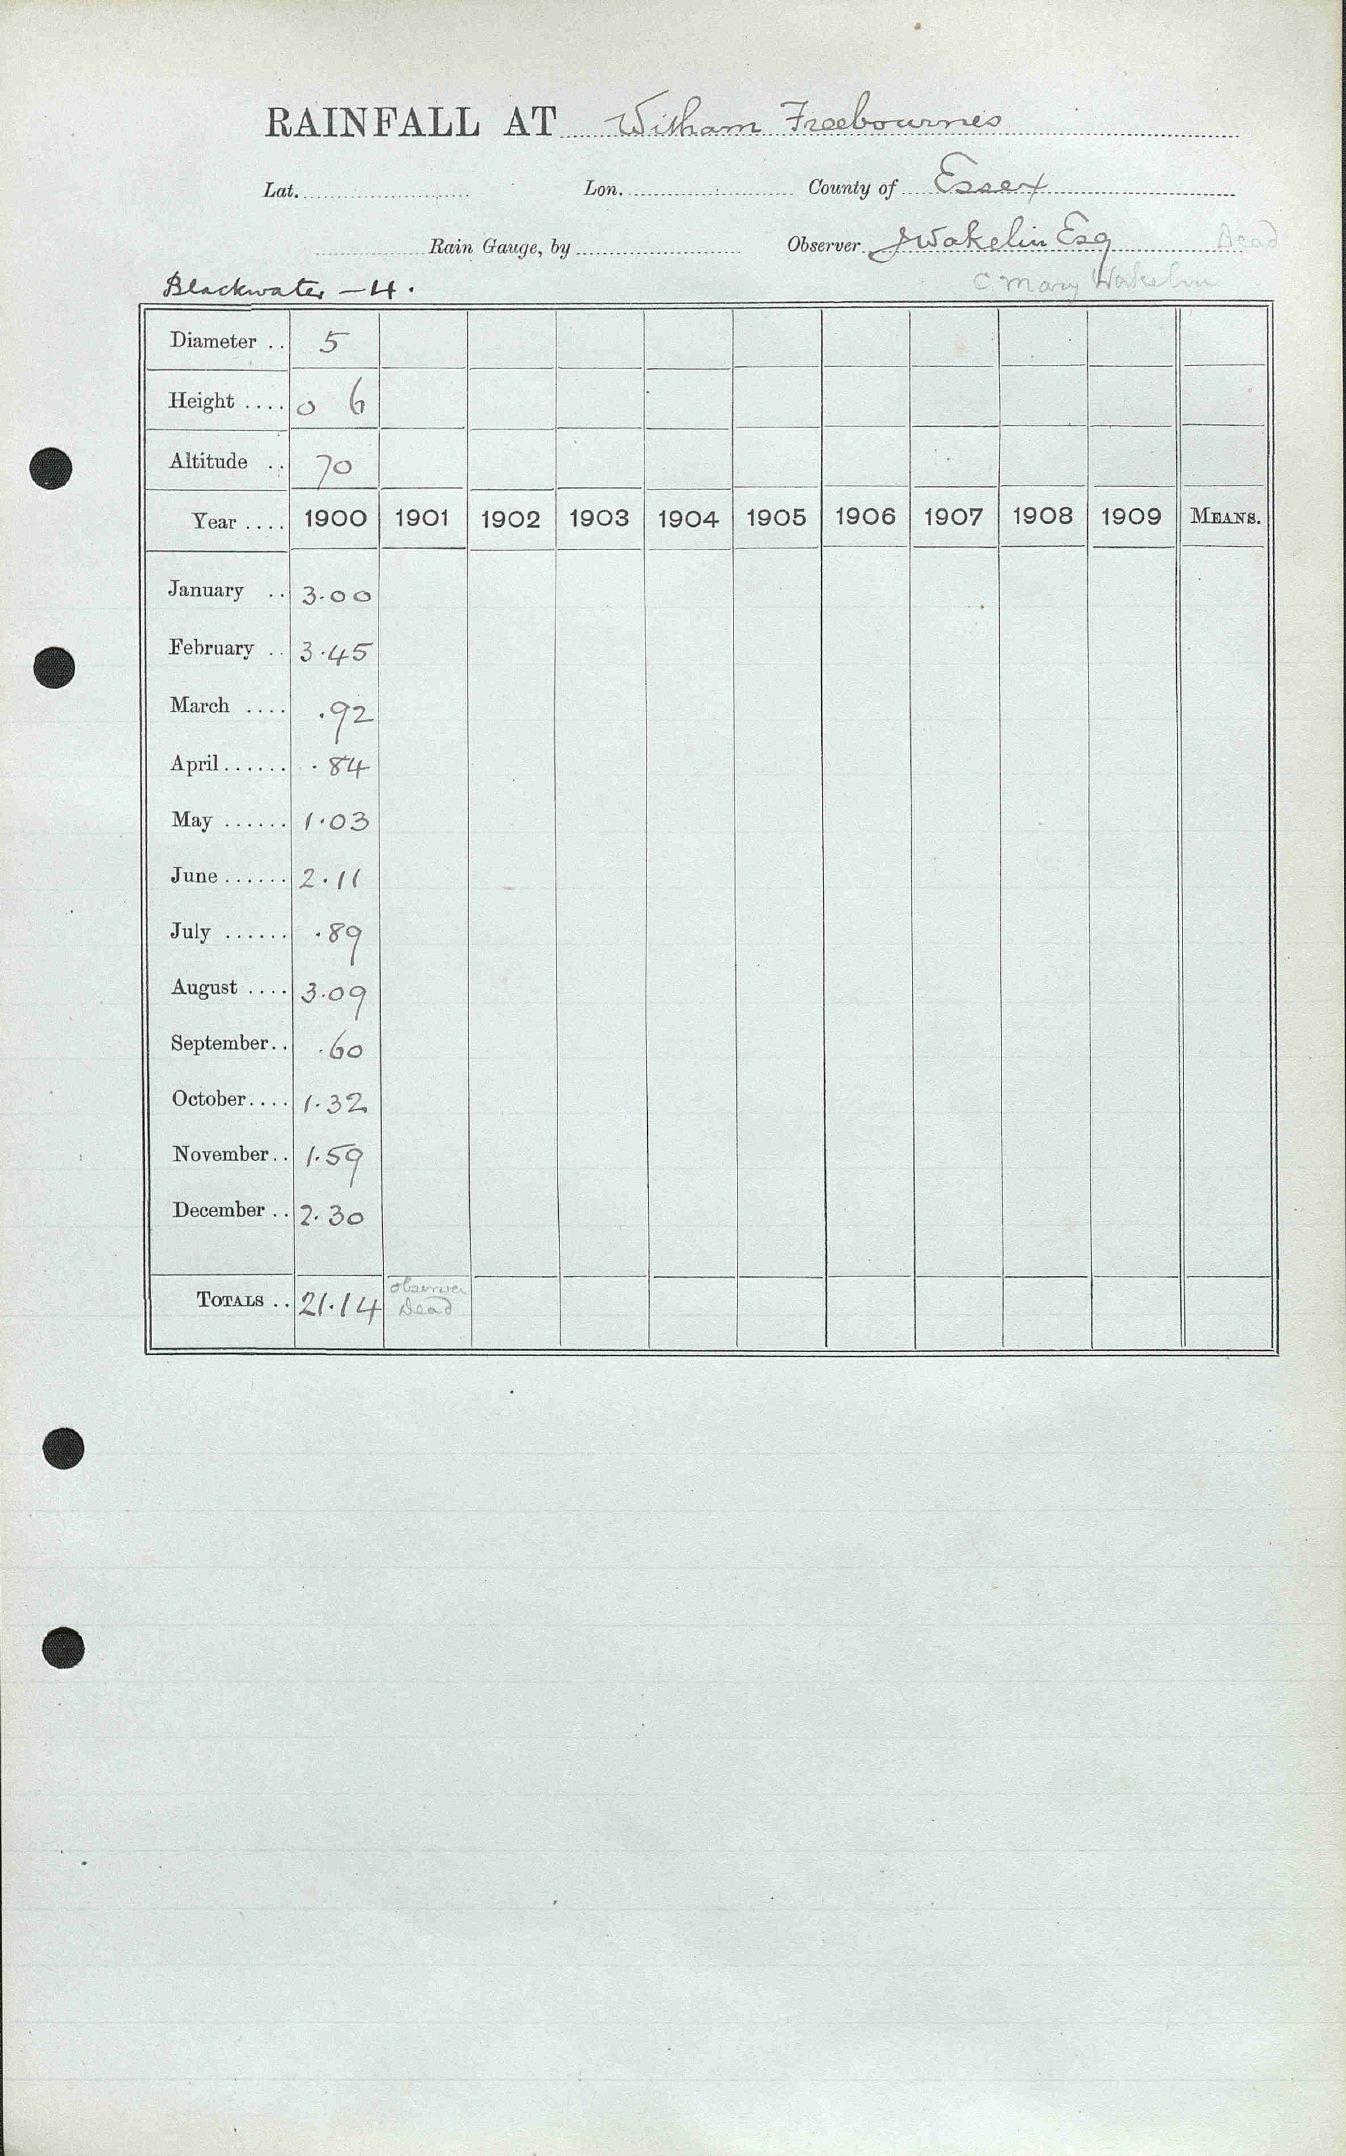 RAINFALL AT Witham Freebournes
Lat. Lon. County of Essex
Rain Gauge, by Observer J Wakelin Esq Dead
Blackwater — 4. C. Mary Wakelin
Diameter .. 5
Height .... 0 6
Altitude .. 70
Year .... 1900 1901 1902 1903 1904 1905 1906 1907 1908 1909 MEANS.
January .. 3.00
February .. 3.45
March .... .92
April ...... .84
May ...... 1.03
June ...... 2.11
July ...... .89
August .... 3.09
September .. .60
October .... 1.32
November .. 1.59
December .. 2.30
TOTALS .. 21.14 observer Dead